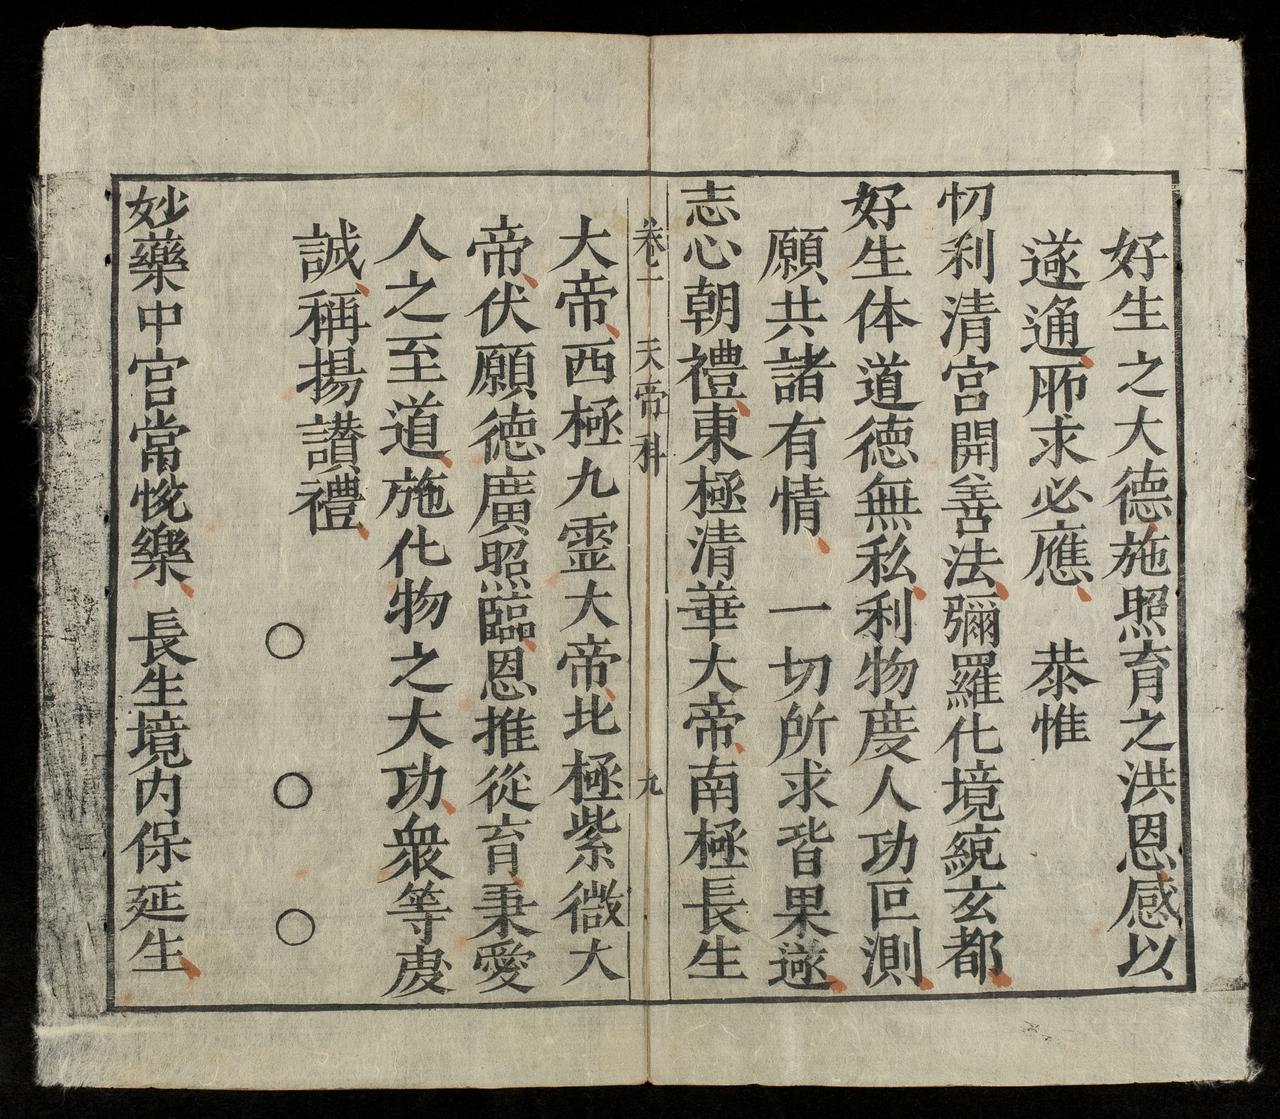 好生之大德施照育之洪恩感以
遂通所求必應　恭惟
忉利清宮開善法彌羅化境統玄都
好生体道德無私利物度人功叵測
願共諸有情　一切所求皆果遂
志心朝禮東極清華大帝南極長生
卷一　天帝科　九
大帝西極九靈大帝北極紫微大
帝伏願德廣照臨恩推從育秉愛
人之至道施化物之大功衆等虔
誠稱揚讃禮
○　○　○
妙藥中宮當悅樂　長生境內保延生